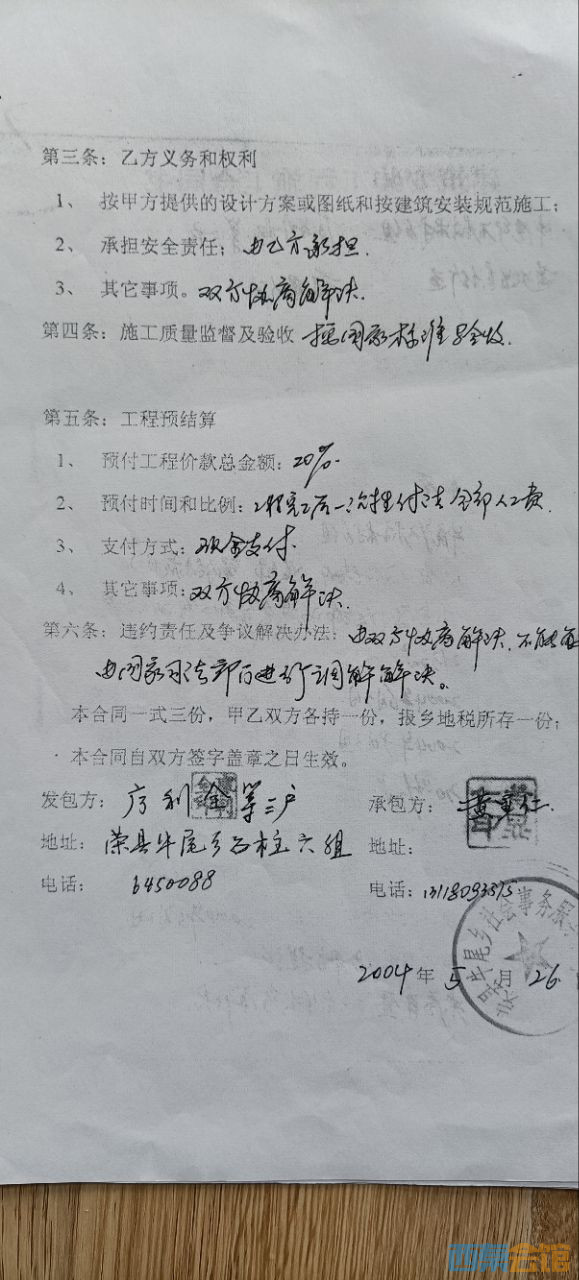 第三条：乙方义务和权利
1、 按甲方提供的设计方案或图纸和按建筑安装规范施工；
2、 承担安全责任；由乙方承担.
3、 其它事项。双方协商解决.
第四条：施工质量监督及验收 按国家标准验收.
第五条：工程预结算
1、 预付工程价款总金额：20%.
2、 预付时间和比例：工程完工后一次性付清全部人工费.
3、 支付方式：现金支付.
4、 其它事项：双方协商解决.
第六条：违约责任及争议解决办法：由双方协商解决.不能
由国家司法部门进行调解解决。
本合同一式三份，甲乙双方各持一份，报乡地税所存一份；
本合同自双方签字盖章之日生效。
发包方： 利金等三户 承包方：
地址：荣县牛尾乡石柱六组 地址：
电话： 6450088 电话：
牛尾乡社会事务
2004年5月26
西祠会馆